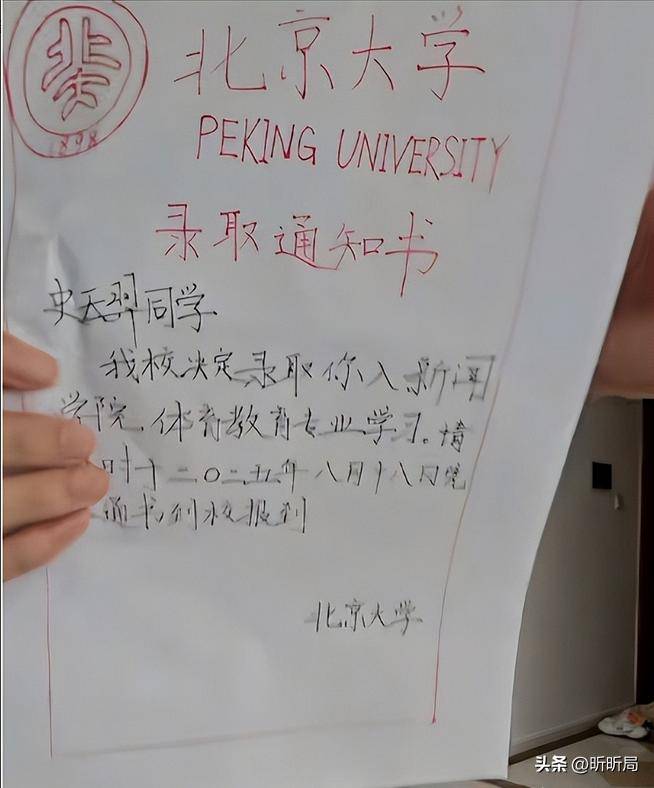 1898
北京大学
PEKING UNIVERSITY
录取通知书
史天翔同学
我校决定录取你入新闻
学院,体育教育专业学习。请
时于二〇二五年八月十八日凭
通书到校报到
北京大学
头条 @昕昕局